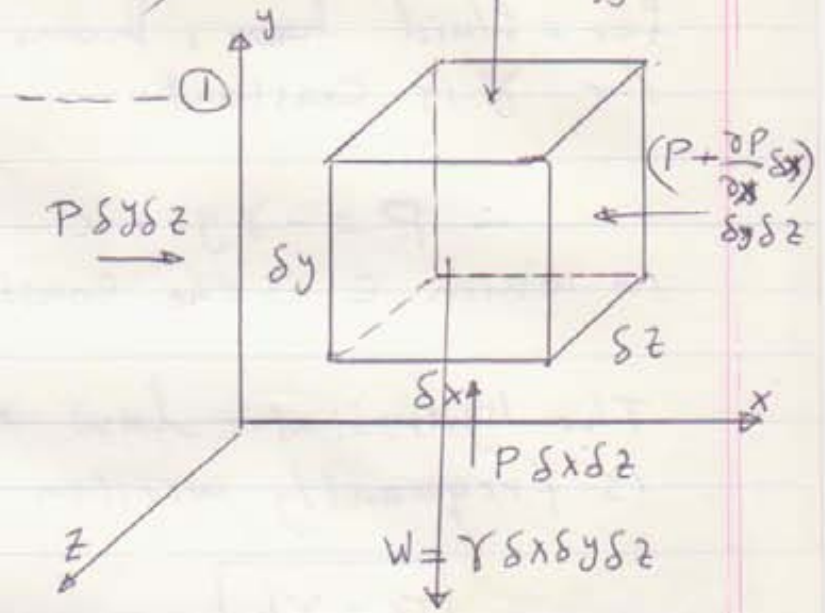 y
---- ①
(P + ∂P/∂x δx)
δyδz
P δyδz
δy
δz
δx
x
P δxδz
z
W = γ δxδyδz